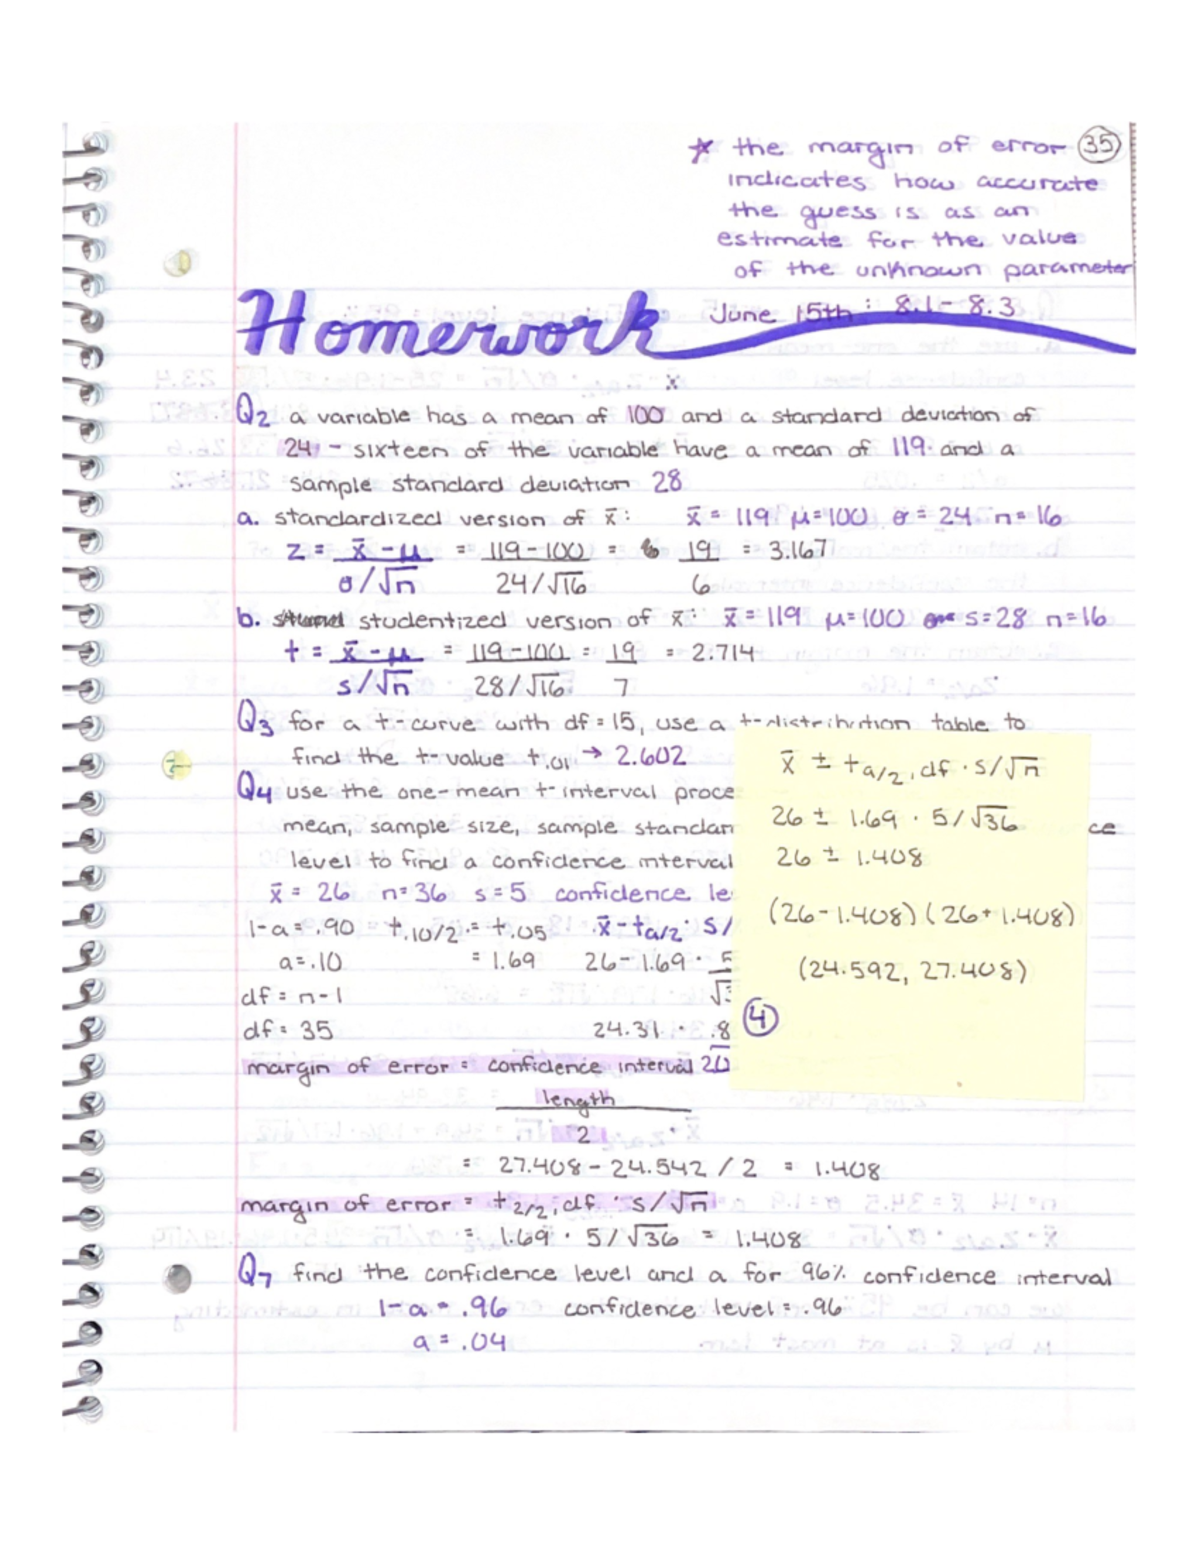 * the margin of error 35
indicates how accurate
the guess is as an
estimate for the value
of the unknown parameter
Homework June 15th : 8.1 - 8.3
x
Q2 a variable has a mean of 100 and a standard deviation of
24 - sixteen of the variable have a mean of 119. and a
sample standard deviation 28
a. standardized version of x̄: x̄ = 119 μ=100 σ = 24 n=16
z = x̄ - μ / σ/√n = 119-100 / 24/√16 = 19 / 6 = 3.167
b. studentized version of x̄: x̄ = 119 μ=100 s=28 n=16
t = x̄ - μ / s/√n = 119-100 / 28/√16 = 19 / 7 = 2.714
Q3 for a t-curve with df = 15, use a t-distribution table to
find the t-value t.01 → 2.602
Q4 use the one-mean t-interval proce
mean, sample size, sample standar ce
level to find a confidence interval
x̄ = 26 n=36 s=5 confidence le
1-a = .90 t.10/2 = t.05 x̄ - ta/2 · s/
a = .10 = 1.69 26 - 1.69 · 5
df = n-1 √3
df = 35 24.31 · .8
margin of error = confidence interval 20
length
2
= 27.408 - 24.542 / 2 = 1.408
margin of error = t2/2, df · s/√n
= 1.69 · 5/√36 = 1.408
Q7 find the confidence level and a for 96% confidence interval
1-a = .96 confidence level = .96
a = .04
x̄ ± ta/2, df · s/√n
26 ± 1.69 · 5/√36
26 ± 1.408
(26-1.408)(26+1.408)
(24.592, 27.408)
4